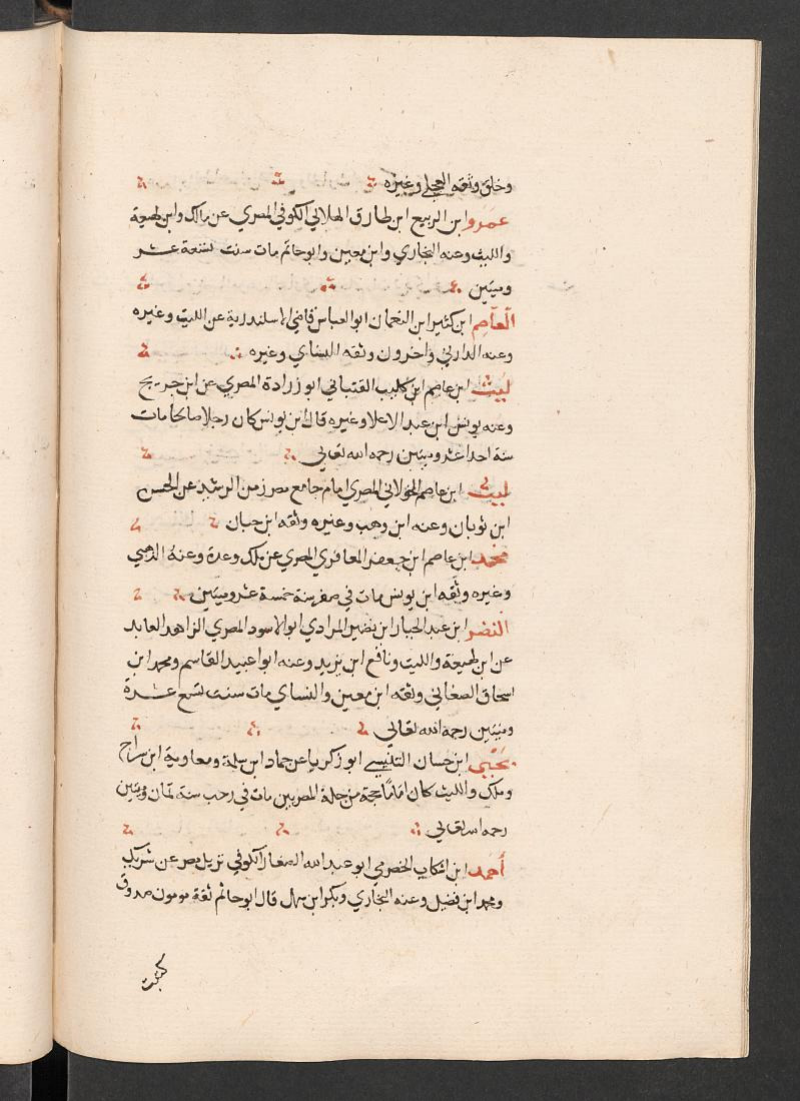 وخلق وثقه العجلي وغيره
عمرو ابن الربيع ابن طارق الهلالي الكوفي المصري عن مالك وابن لهيعة
والليث وعنه البخاري وابن معين وابوحاتم مات سنت تسعة عشر
وميتين
العاصم ابن كثير ابن النعمان ابوالعباس قاضي الاسلندرية عن الليث وغيره
وعنه الدارني واخرون وثقه النساي وغيره
ليث ابن عاصم ابن كليب القتباني ابو زرادة المصري عن ابن جريج
وعنه يونس ابن عبد الاعلا وغيره قال ابن يونس كان رجلا صالحا مات
سنة احدا عشر وميتين رحمه الله تعالي
ليث ابن عاصم الخولاني المصري امام جامع مصر زمن الرشيد عن الحسن
ابن ثوبان وعنه ابن وهب وغيره وثقه ابن حبان
محمد ابن عاصم ابن جعفر المعافري المصري عن ملك وعدة وعنه الذهبي
وغيره وثقه ابن يونس مات في صفر سنة خمسة عشر وميتين
النضر ابن عبد الجبار ابن نضير المرادي ابو الاسود المصري الزاهد العابد
عن ابن لهيعة والليث ونافع ابن يزيد وعنه ابوا عبيد القاسم ومحمد ابن
اسحاق الصغاني وثقه ابن معين والنساي مات سنت تسع عشرة
وميتين رحمه الله تعالي
يحيى ابن حسان التنيسي ابو زكريا عن حماد ابن سلمة ومعاوية ابن سراج
وملك والليث كان اماما حجة من جلة المصريين مات في رجب سنة ثمان وميتين
رحمه الله تعالي
أحمد ابن اشكاب الحضرمي ابو عبد الله الصفار الكوفي نزيل مصر عن شريك
ومحمد ابن فضيل وعنه البخاري وبكر ابن سهل قال ابو حاتم ثقة مومون صدوق
كتبت